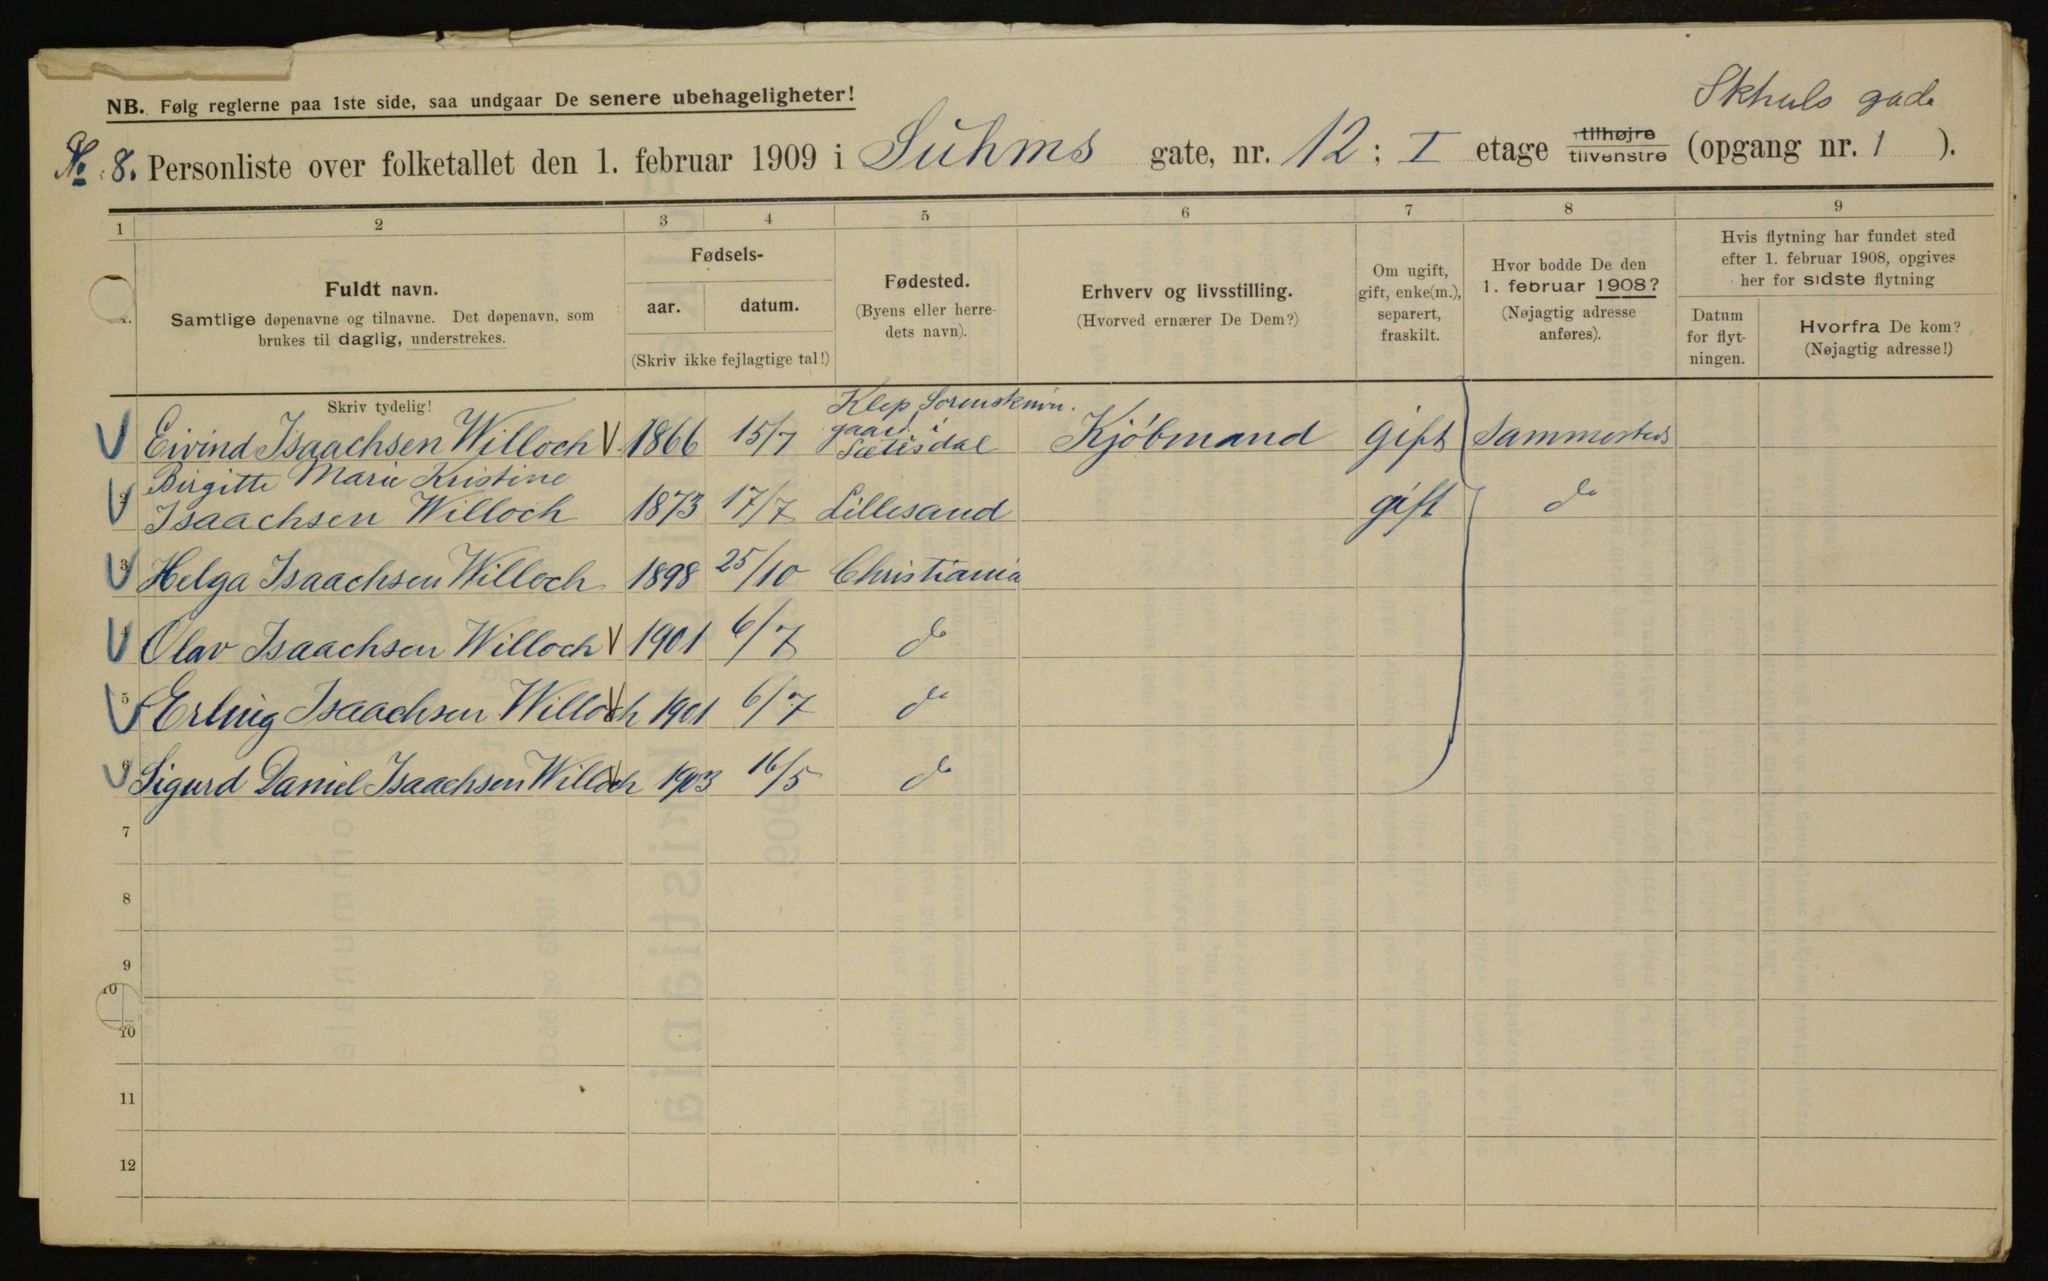 NB. Følg reglerne paa 1ste side, saa undgaar De senere ubehageligheter!
Skhuls gade
No 8. Personliste over folketallet den 1. februar 1909 i Suhms gate, nr. 12; I etage tilhøjre tilvenstre (opgang nr. 1 ).
1 2 3 4 5 6 7 8 9
Fuldt navn.
Samtlige døpenavne og tilnavne. Det døpenavn, som
brukes til daglig, understrekes.
Skriv tydelig!
Fødsels-
aar. datum.
(Skriv ikke fejlagtige tal!)
Fødested.
(Byens eller herre-
dets navn).
Erhverv og livsstilling.
(Hvorved ernærer De Dem?)
Om ugift,
gift, enke(m.),
separert,
fraskilt.
Hvor bodde De den
1. februar 1908?
(Nøjagtig adresse
anføres).
Hvis flytning har fundet sted
efter 1. februar 1908, opgives
her for sidste flytning
Datum
for flyt-
ningen.
Hvorfra De kom?
(Nøjagtig adresse!)
Klep Sorenskriver
gaard i
Eivind Isaachsen Willoch 1866 15/7 Sætisdal Kjøbmand gift Sammesteds
Birgitte Marie Kristine
2 Isaachsen Willoch 1873 17/7 Lillesand gift do
3 Helga Isaachsen Willoch 1898 25/10 Christiania
4 Olav Isaachsen Willoch 1901 6/7 do
5 Erling Isaachsen Willoch 1901 6/7 do
6 Sigurd Daniel Isaachsen Willoch 1903 16/5 do
7
8
9
10
10
11
12